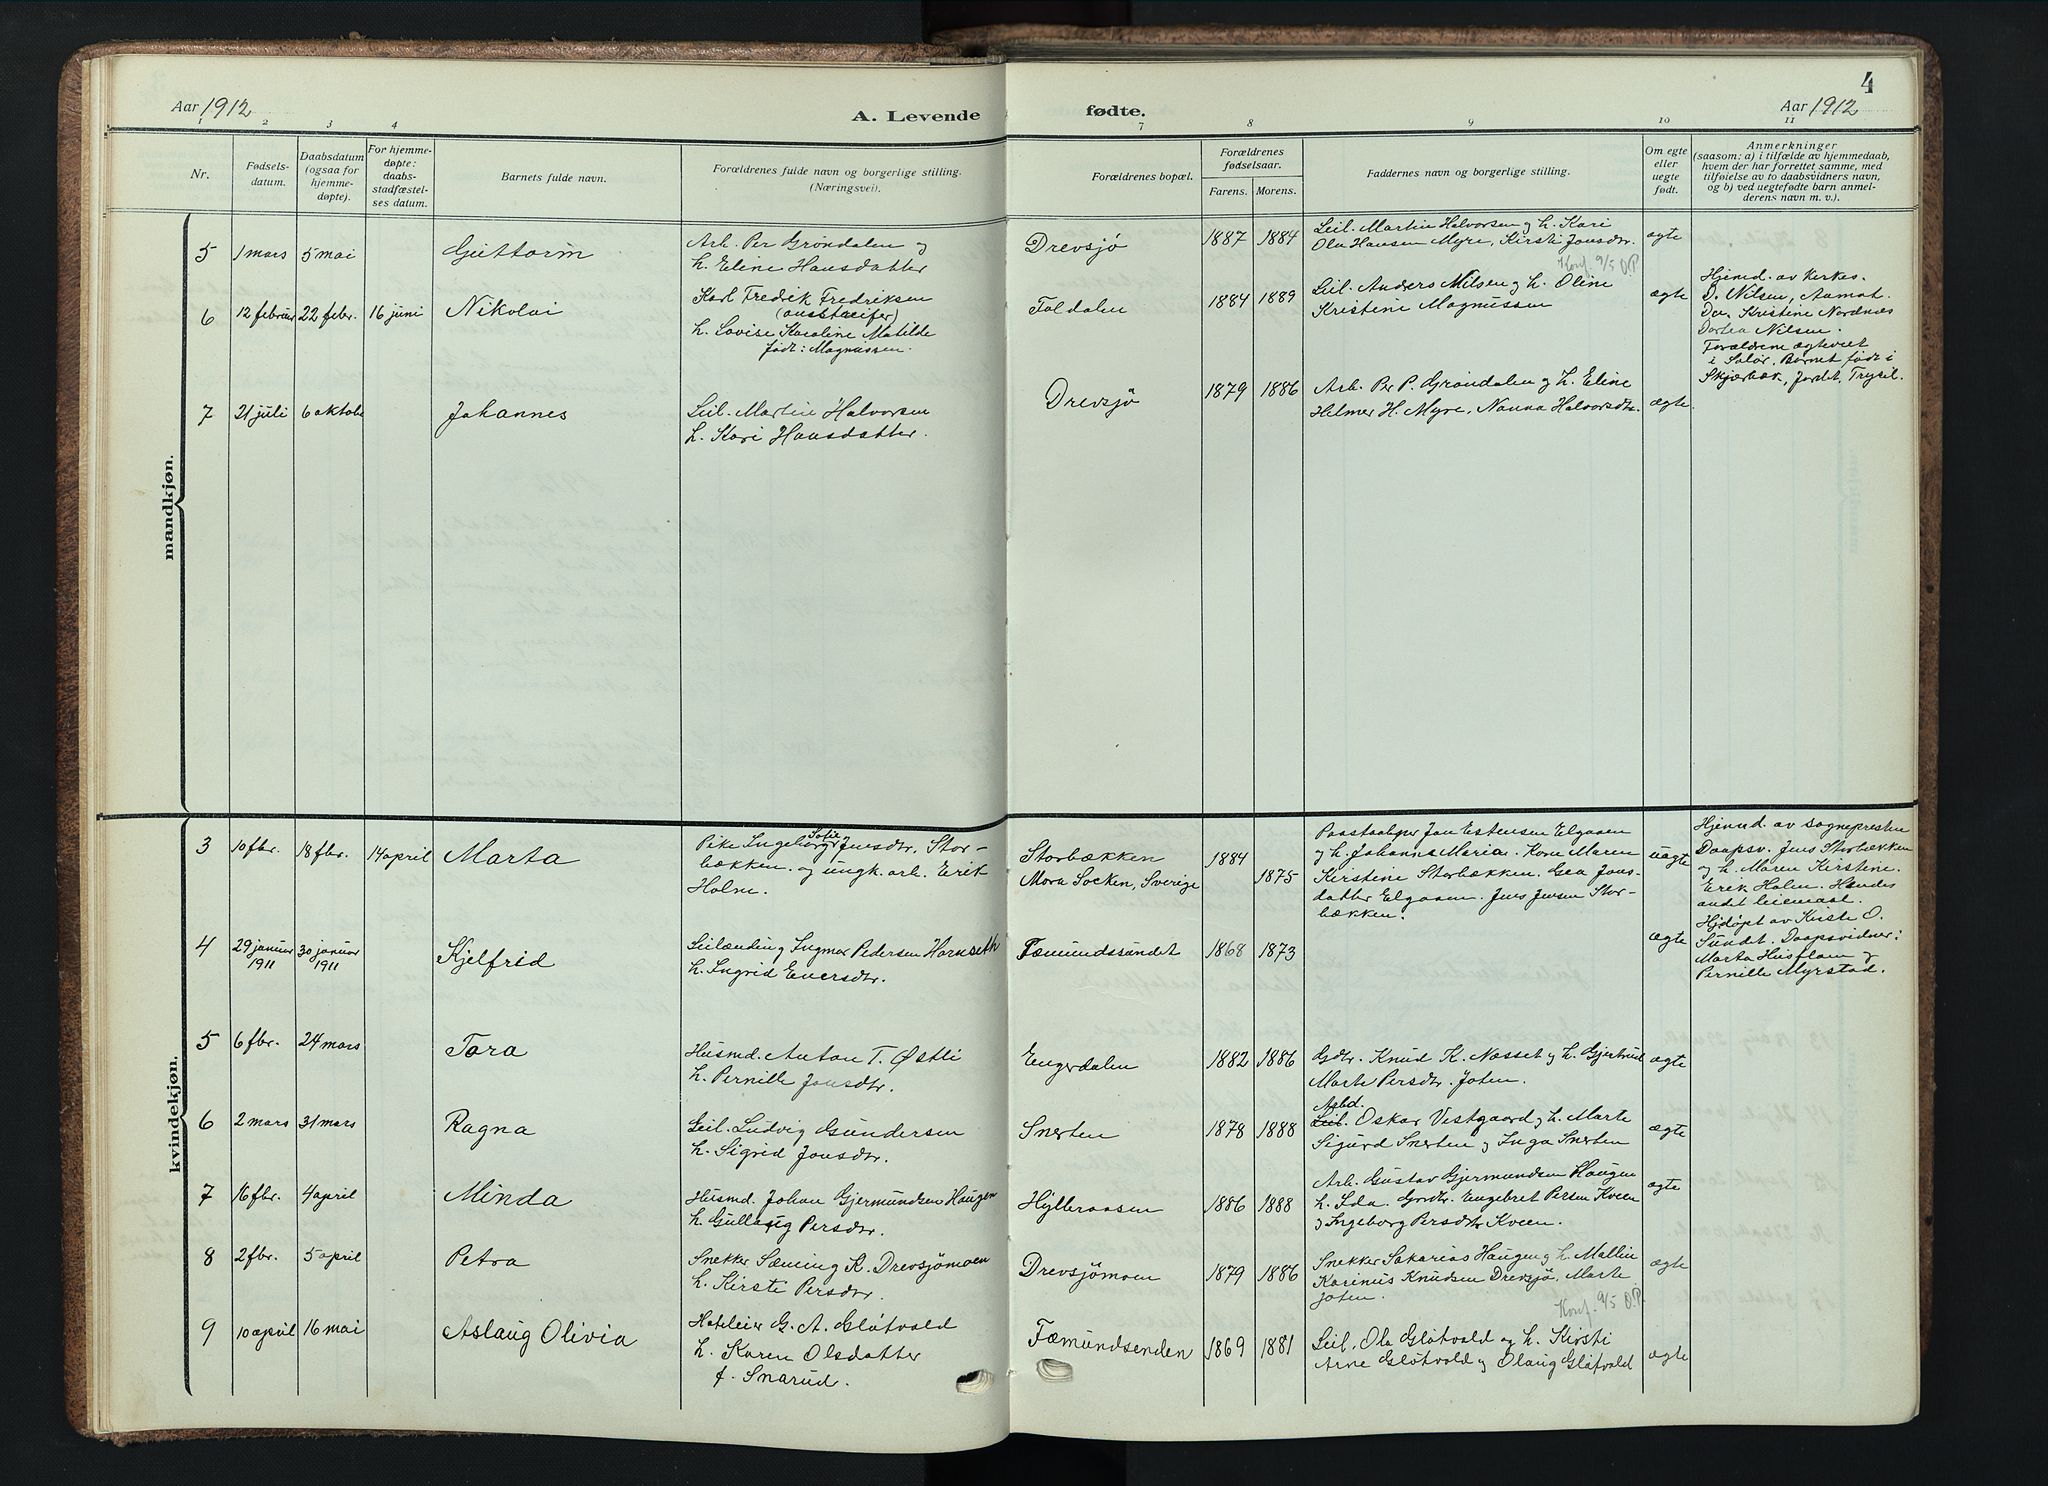 4
Aar 1912
A. Levende fødte.
Aar 1912
1 2 3 4 7 8 9 10 11
Nr.
Fødsels-
datum.
Daabsdatum
(ogsaa for
hjemme-
døpte).
For hjemme-
døpte:
daabs-
stadfæstel-
ses datum.
Barnets fulde navn.
Forældrenes fulde navn og borgerlige stilling.
(Næringsvei).
Forældrenes bopæl.
Forældrenes
fødselsaar.
Farens. Morens.
Faddernes navn og borgerlige stilling.
Om egte
eller
uegte
født.
Anmerkninger
(saasom: a) i tilfælde av hjemmedaab,
hvem der har forrettet samme, med
tilføielse av to daabsvidners navn,
og b) ved uegtefødte barn anmel-
derens navn m. v.).
mandkjøn.
5 1 mars 5 mai Guttorm
Arb. Per Grøndalen og
h. Eline Hansdatter
Drevsjø 1887 1884
Leil. Martin Halvorsen og h. Kari
Ola Hansen Myre, Kirsti Jonsdtr.
Konf. 9/5 O.P.
ægte
6 12 februar 22 febr. 16 juni Nikolai
Karl Fredrik Fredriksen
(omstreifer)
h. Lovise Karoline Matilde
født: Magnussen.
Foldalen 1884 1889
Leil. Anders Nilsen og h. Oline
Kristine Magnussen
ægte
Hjemd. av kirkes.
D. Nilsen, Aamot.
Dv. Kristine Nordnæs
Dortea Nilsen.
Forældrene ægteviet
i Solør, Barnet født i
Skjærbæk, Jordet, Trysil.
7 21 juli 6 oktobr Johannes
Leil. Martin Halvorsen
h. Kari Hansdatter.
Drevsjø 1879 1886
Arb. Per P. Grøndalen og h. Eline
Helmer H. Myre, Nanna Halvorsdtr.
ægte.
kvindekjøn.
3 10 fbr. 18 fbr. 14 april Marta
Pike Ingeborg Sofie Jensdtr. Stor-
bækken. og ungk. arb. Erik
Holm.
Storbækken
Mora Socken, Sverige
1884
1875
Jon Estensen Elgaaen
og h. Johanna Maria. Kone Maren
Kirstine Storbækken. Gea Jons-
datter Elgaaen. Jens Jensen Stor-
bækken.
uægte
Hjemd. av sognepresten
Daapsv. Jens Storbækken
og h. Maren Kirstine.
Erik Holm. Hendes
andet leiermaal.
4 29 januar 1911 30 januar 1911 Kjelfrid
Leilænding Ingmar Pedersen Hornseth
h. Ingrid Eversdtr.
Fæmundssundet 1868 1873
ægte
Hjdøpt av Kirste O.
Sundet. Daapsvidner:
Marta Husfloen og
Pernille Myrstad.
5 6 fbr. 24 mars Tora
Husmd. Anton T. Østli
h. Pernille Jonsdtr.
Engerdalen 1882 1886
Gdbr. Knud K. Næsset og h. Gjertrud
Marte Persdtr. Joten.
ægte
6 2 mars 31 mars Ragna
Leil. Ludvig Gundersen
h. Sigrid Jonsdtr.
Snerten 1878 1888
Arbd.
Leil. Oskar Vestgaard og h. Marte
Sigurd Snerten og Inga Snerten
ægte
7 16 fbr. 4 april Minda
Husmd. Johan Gjermundsen Haugen
h. Gullaug Persdtr.
Hylleraasen 1886 1888
Arb. Gustav Gjermundsen Haugen
h. Ida. Gardbr. Engebret Persen Kveen
og Ingeborg Persdtr Kveen.
ægte
8 2 fbr. 5 april Petra
Snekker Sæming K. Drevsjømoen
h. Kirste Persdtr.
Drevsjømoen 1879 1886
Snekker Sakarias Haugen og h. Mallin
Karinus Knudsen Drevsjø, Marte
Joten.
Konf. 9/5 O.P.
ægte
9 10 april 16 mai Aslaug Olivia
Hoteleier G. A. Gløtvold
h. Karen Olsdatter
f. Snarud.
Fæmundsenden 1869 1881
Leil. Ola Gløtvold og h. Kirsti
Arne Gløtvold og Olaug Gløtvold
ægte